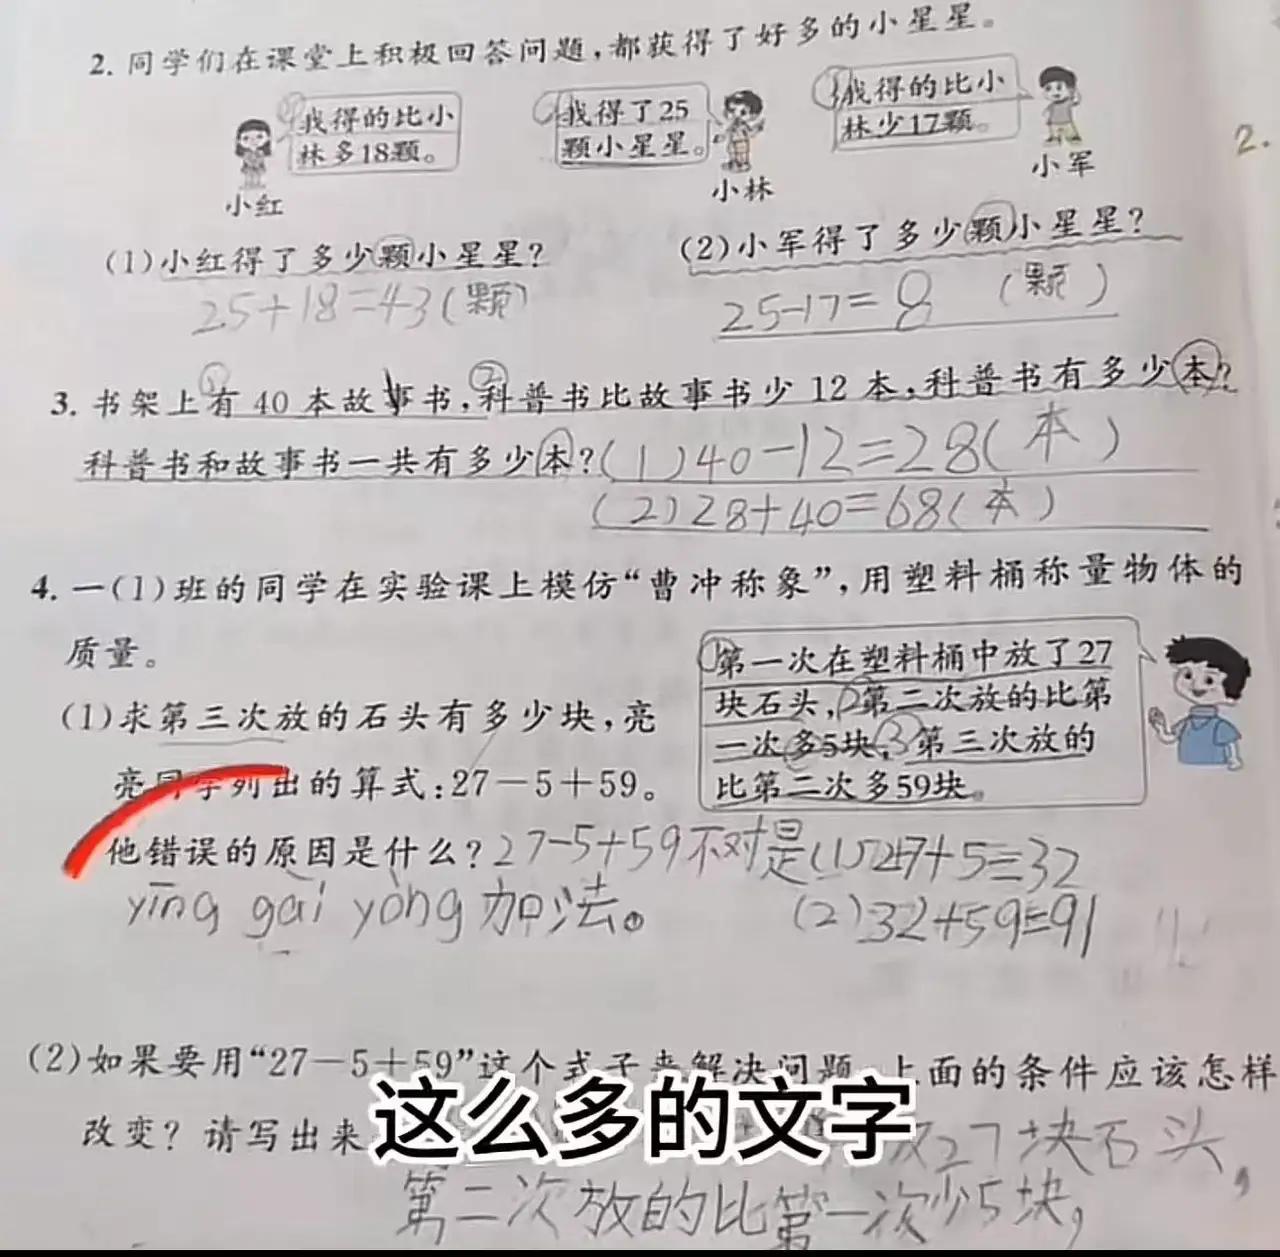 2. 同学们在课堂上积极回答问题,都获得了好多的小星星。
我得的比小
林多18颗。
小红
我得了25
颗小星星。
小林
我得的比小
林少17颗。
小军
2.
(1)小红得了多少颗小星星?
25+18=43(颗)
(2)小军得了多少颗小星星?
25-17=8 (颗)
3. 书架上有 40 本故事书,科普书比故事书少 12 本,科普书有多少本?
科普书和故事书一共有多少本?(1)40-12=28(本)
(2)28+40=68(本)
4. 一(1)班的同学在实验课上模仿“曹冲称象”,用塑料桶称量物体的
质量。
①第一次在塑料桶中放了27
块石头,②第二次放的比第
一次多5块,③第三次放的
比第二次多59块。
(1)求第三次放的石头有多少块,亮
亮同学列出的算式:27-5+59。
他错误的原因是什么?27-5+59不对是(1)27+5=32
yīng gāi yòng 加法。
(2)32+59=91
(2)如果要用“27-5+59”这个式子来解决问题,上面的条件应该怎样
改变? 请写出来
这么多的文字
27块石头,
第二次放的比第一次少5块,